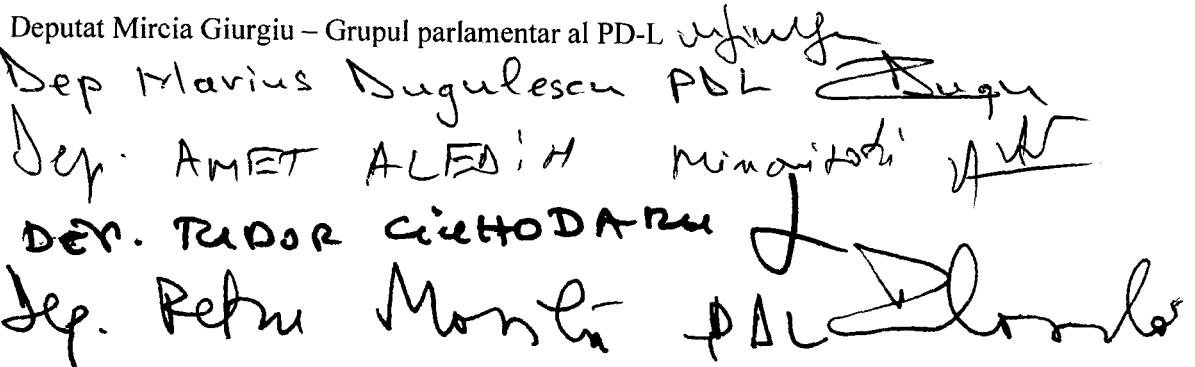 Deputat Mircia Giurgiu – Grupul parlamentar al PD-L
Dep Marius Dugulescu PDL
Dep. AMET ALEDIN Minorități
DEP. TUDOR CIUHODARU
Dep. Petru Movilă PDL